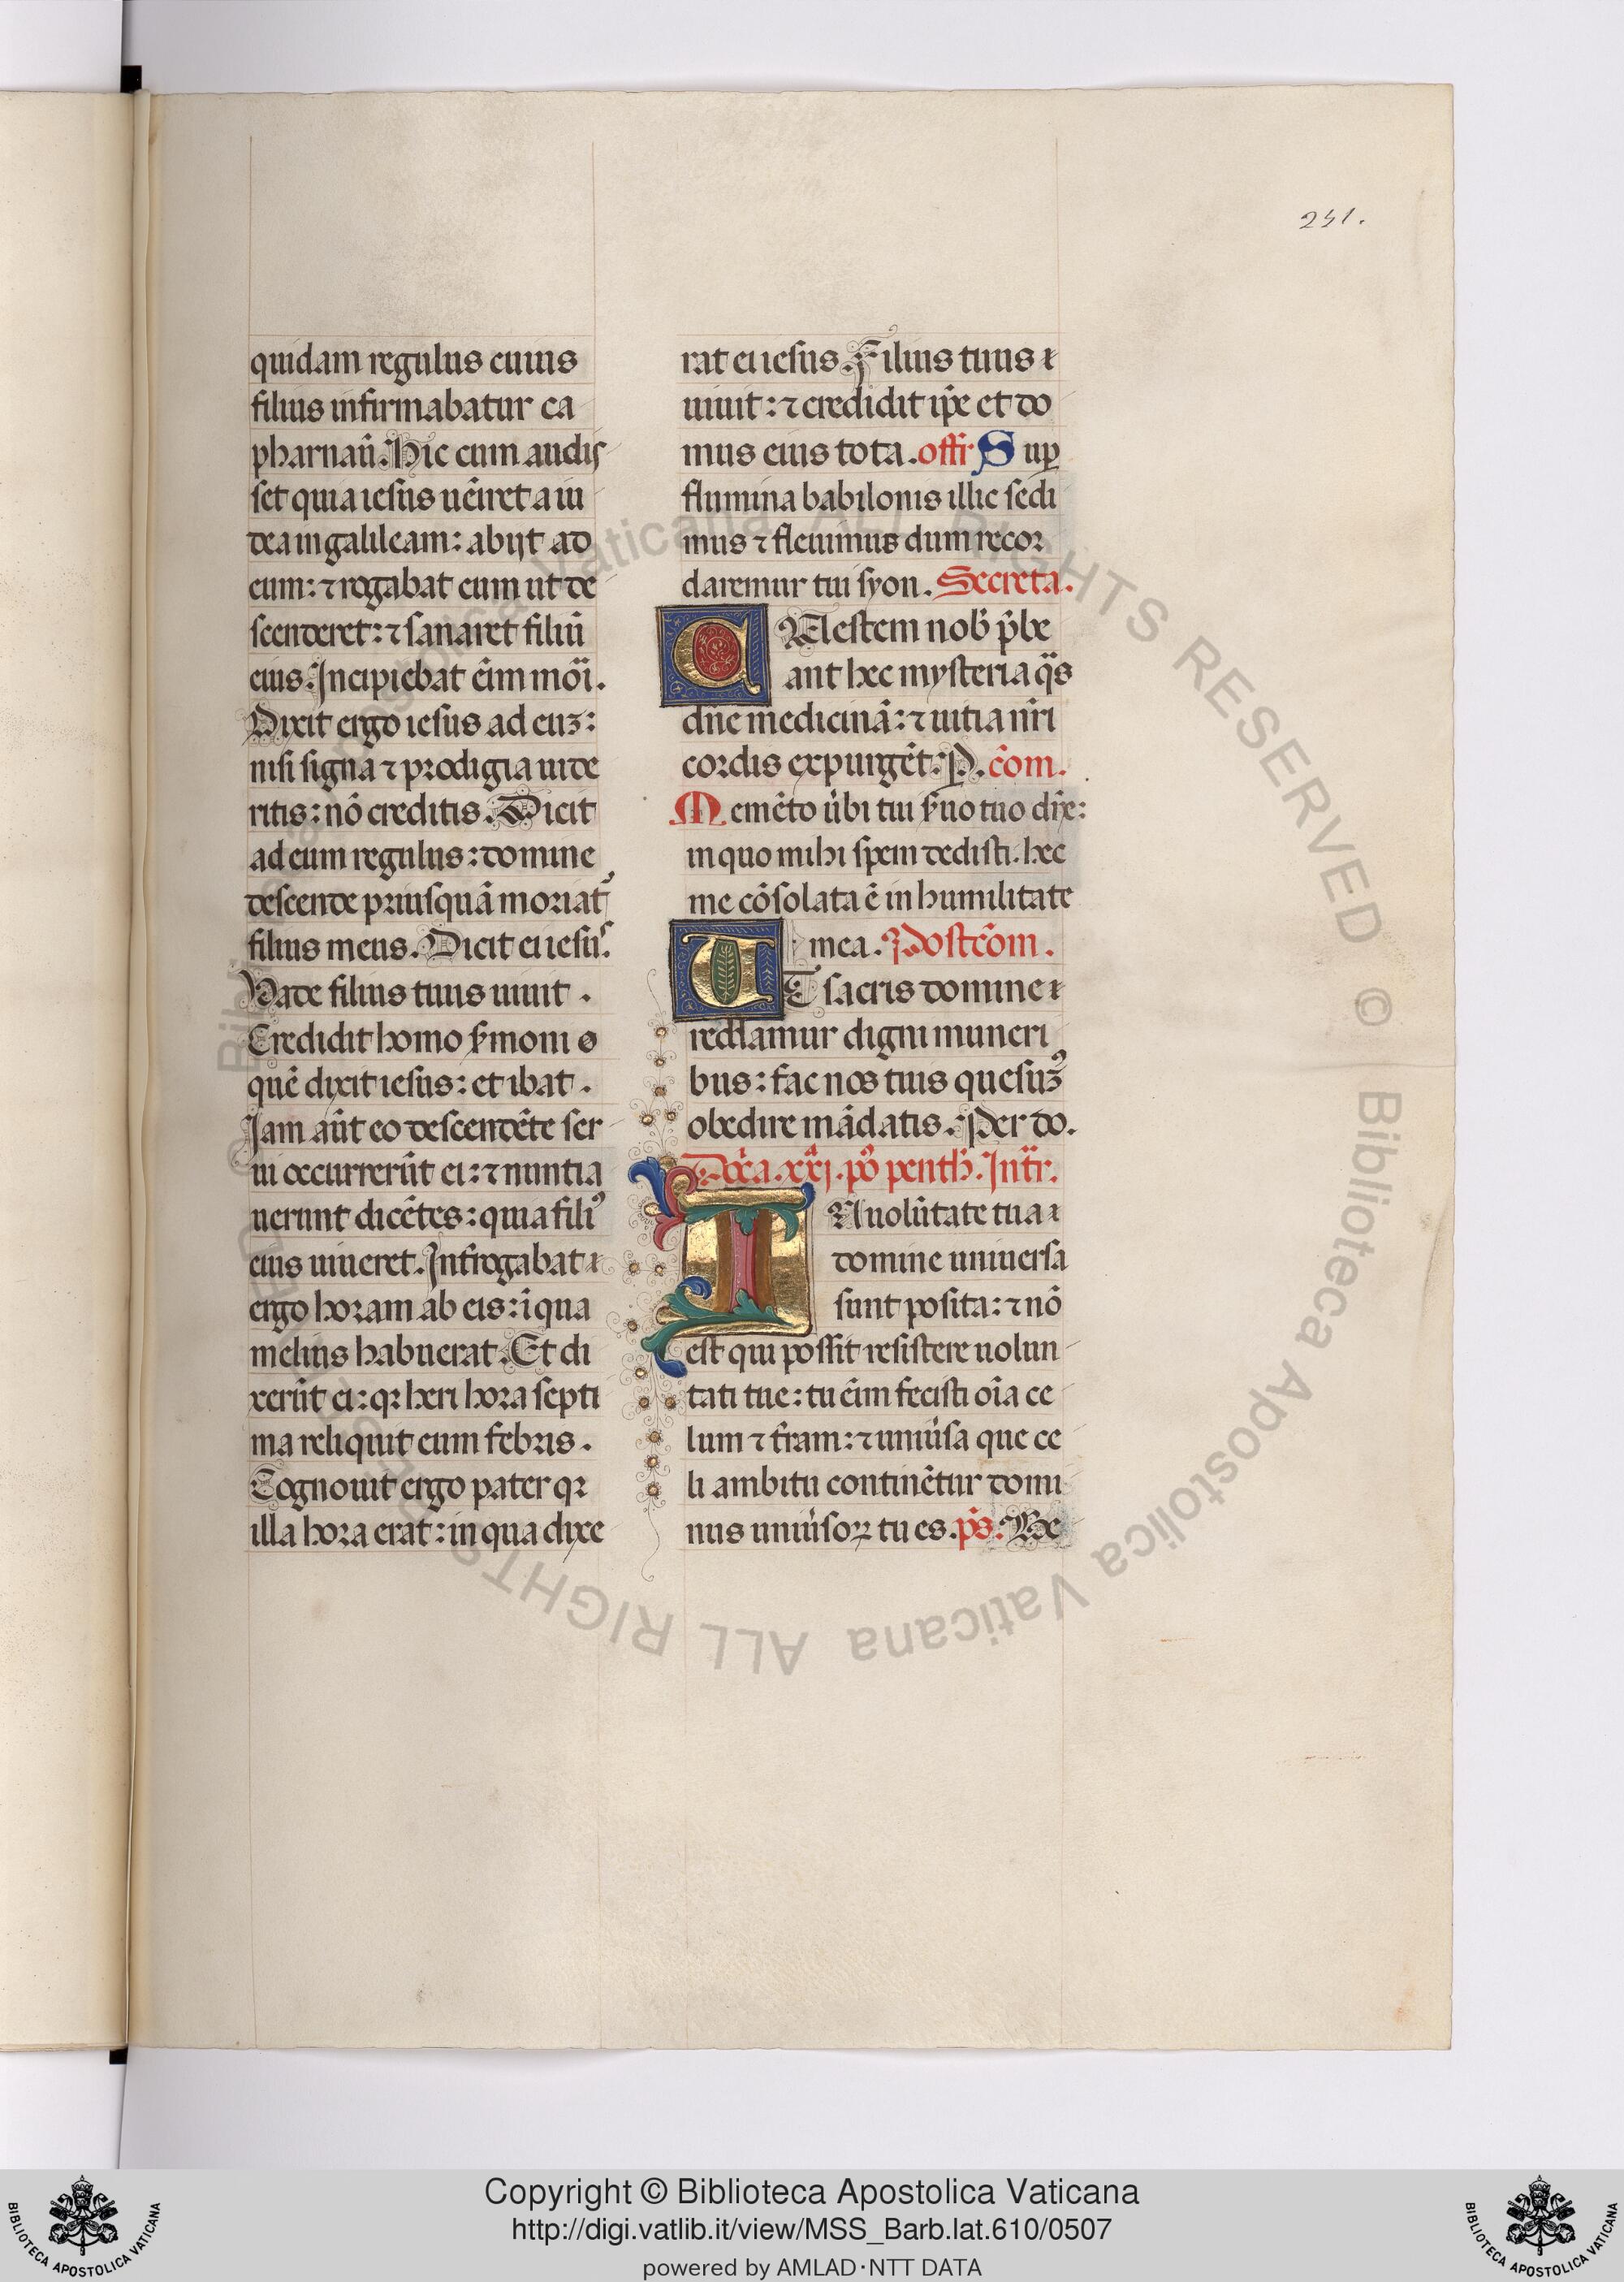 241.
quidam regulus cuius
filius infirmabatur ca
pharnaū. Hic cum audis
set quia iesus uēiret a iu
dea in galileam: abijt ad
eum: ⁊ rogabat eum ut de
scenderet: ⁊ sanaret filiū
eius. Incipiebat eīm mōi.
Dixit ergo iesus ad euꝫ:
nisi signa ⁊ prodigia uide
ritis: nō creditis. Dicit
ad eum regulus: domine
descende priusquā moriat᷒
filius meus. Dicit ei iesus.
Vade filius tuus uiuit.
Credidit homo s̄moni
quē dixit iesus: et ibat.
Iam aūt eo descendēte ser
ui occurrerūt ei: ⁊ nuntia
uerunt dicētes: quia filiꝰ
eius uiueret. Inťrogabat
ergo horam ab eis: ī qua
melius habuerat. Et di
xerūt ei: qꝛ heri hora septi
ma reliquit eum febris.
Cognouit ergo pater qꝛ
illa hora erat: in qua dixe
rat ei iesus Filius tuus
uiuit: ⁊ credidit ip̄e et do
mus eius tota. offr̄ Suꝑ
flumina babilonis illic sedi
mus ⁊ fleuimus dum recor
daremur tui syon. Secreta.
CAelestem nob̄ p̄be
ant hec mysteria q̄s
dn̄e medicinā: ⁊ uitia nr̄i
cordis expurgēt. P. cōm.
Memēto ūbi tui s̄uo tuo dn̄e:
in quo mihi spem dedisti. hec
me cōsolata ē in humilitate
mea. Postcōm.
UT sacris domine
reddamur digni muneri
bus: fac nos tuis quesuꝫꝰ
obedire mādatis. Per do.
Dōca. xxj. pꝰ penth̄. Intr̄.
IN volūtate tua
domine uniuersa
sunt posita: ⁊ nō
est qui possit resistere uolun
tati tue: tu eīm fecisti oīa ce
lum ⁊ ťram: ⁊ uniūsa que ce
li ambitu continētur domi
nus uniūsoꝝ tu es. p̄s. Be
© Biblioteca Apostolica Vaticana ALL RIGHTS RESERVED © Biblioteca Apostolica Vaticana ALL RIGHTS RESERVED
Copyright © Biblioteca Apostolica Vaticana
http://digi.vatlib.it/view/MSS_Barb.lat.610/0507
powered by AMLAD·NTT DATA
BIBLIOTECA APOSTOLICA VATICANA
BIBLIOTECA APOSTOLICA VATICANA